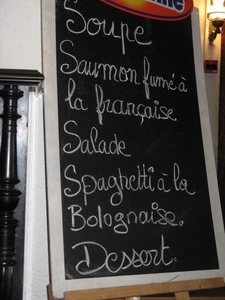 Soupe
Saumon fumé à
la française
Salade
Spaghetti à la
Bolognaise.
Dessert.